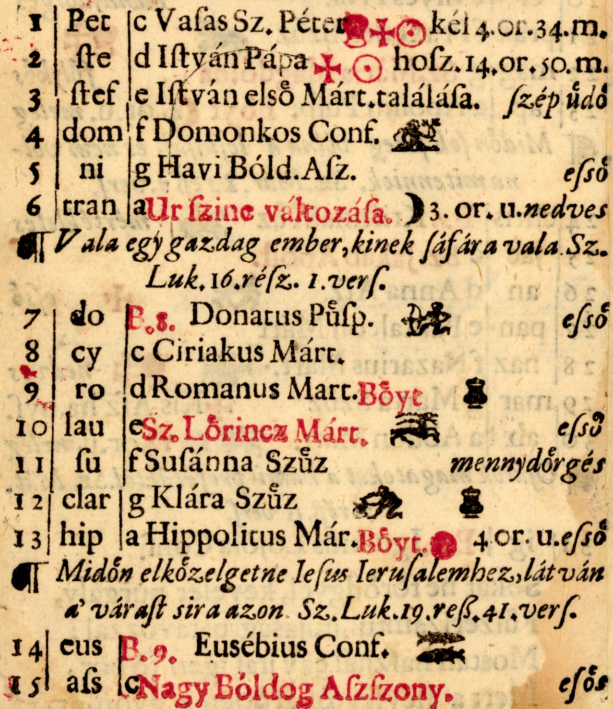 1 Pet c Vaſas Sz. Péter ☩☉ kél 4.or.34.m.
2 ſte d Iſtván Pápa ☩ ☉ hoſz.14.or.50.m.
3 ſtef e Iſtván első Márt.találáſa. ſzép üdő
4 dom f Domonkos Conf.
5 ni g Havi Bóld.Aſz. eſső
6 tran a Ur ſzine változáſa. ☽ 3. or. u.nedves
¶ Vala egy gazdag ember, kinek ſáfára vala. Sz.
Luk. 16. réſz. 1. verſ.
7 do B.8. Donatus Pűſp. eſső
8 cy c Ciriakus Márt.
9 ro d Romanus Mart. Bőyt
10 lau e Sz. Lőrincz Márt. eſső
11 ſu f Suſánna Szűz mennydőrgés
12 clar g Klára Szűz
13 hip a Hippolitus Már. Bőyt. 4 or. u.eſső
¶ Midőn elkőzelgetne Ieſus Ieruſalemhez, látván
a' váraſt sira azon. Sz. Luk. 19. reß. 41. verſ.
14 eus B.9. Eusébius Conf.
15 aſs c Nagy Bóldog Aſzſzony. eſős